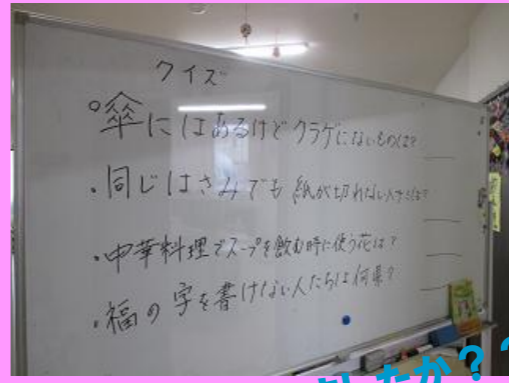 クイズ
傘にはあるけどクラゲにないものは?
・同じはさみでも紙が切れないはさみは?
・中華料理でスープを飲む時に使う花は?
・福の字を書けない人たちは何県?
したか??